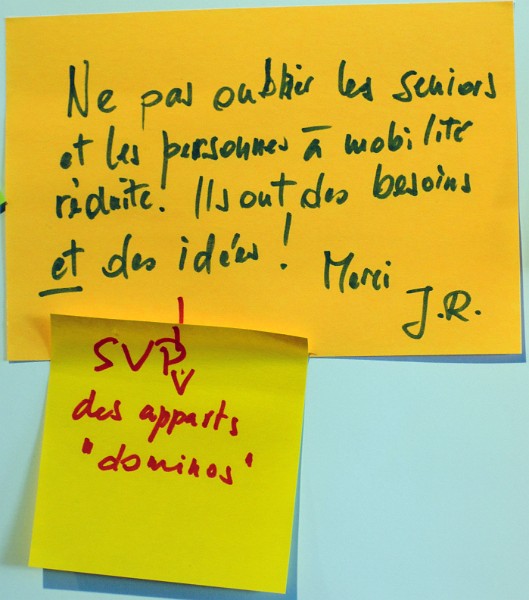 Ne pas oublier les seniors
et les personnes à mobilité
réduite. Ils ont des besoins
et des idées ! Merci
J.R.
SVP
des apparts
"dominos"